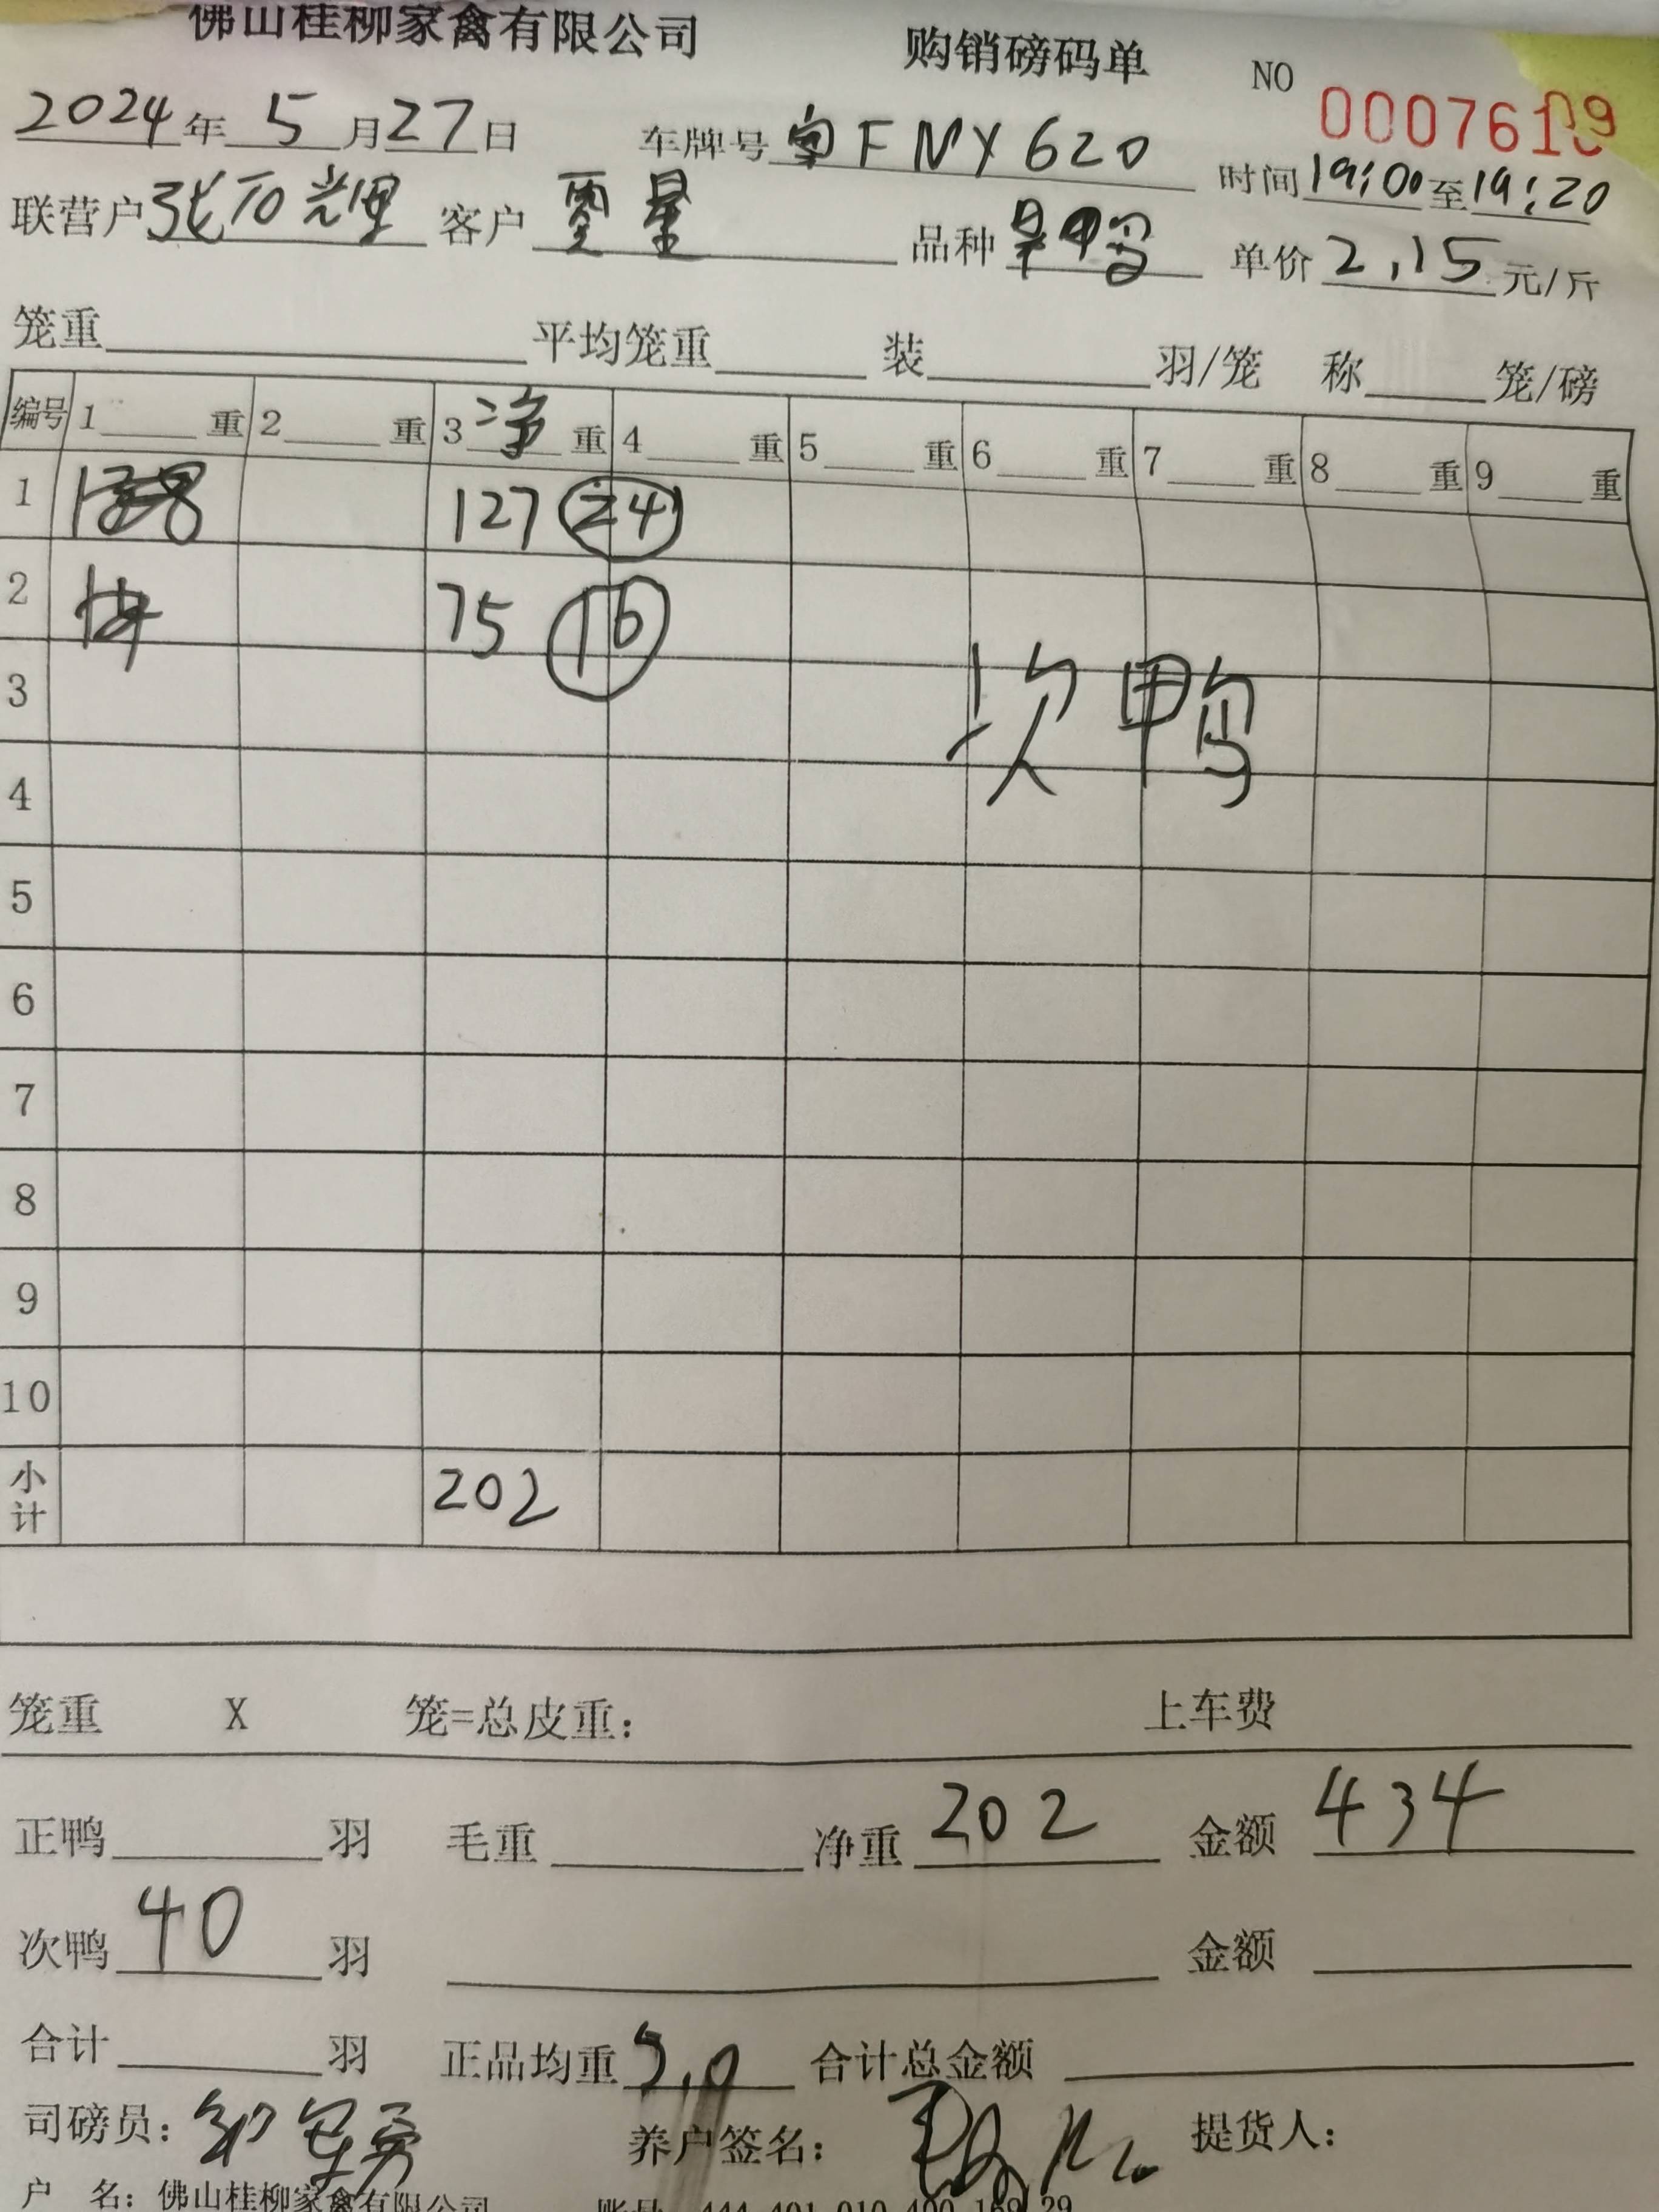 佛山桂柳家禽有限公司 购销磅码单 NO 000761
2024年5月27日 车牌号 粤FNY620 时间19:00至19:20
联营户张石光辉 客户 贾星 品种 单价2.15元/斤
笼重 平均笼重 装 羽/笼 称 笼/磅
编号 1 重 2 重 3 净 重 4 重 5 重 6 重 7 重 8 重 9 重
1 127 24
2 75 16
3 次鸭
4
5
6
7
8
9
10
小计 202
笼重 X 笼=总皮重: 上车费
正鸭 羽 毛重 净重 202 金额 434
次鸭 40 羽 金额
合计 羽 正品均重 5.0 合计总金额
司磅员: 养户签名: 提货人:
户 名: 佛山桂柳家禽有限公司